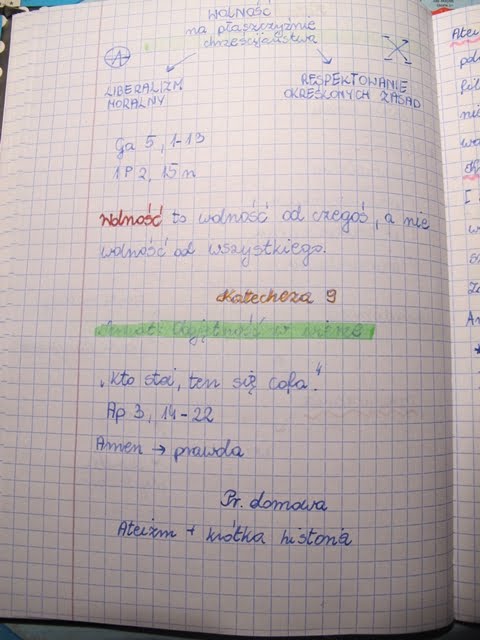 WOLNOŚĆ
na płaszczyźnie
chrześcijaństwa
LIBERALIZM
MORALNY
RESPEKTOWANIE
OKREŚLONYCH ZASAD
Ga 5, 1-13
1P 2, 15n
Wolność to wolność od czegoś, a nie
wolność od wszystkiego.
Katecheza 9
Temat: Oziębłość w wierze
„Kto stoi, ten się cofa."
Ap 3, 14-22
Amen → prawda
Pr. domowa
Ateizm + krótka historia
Atei